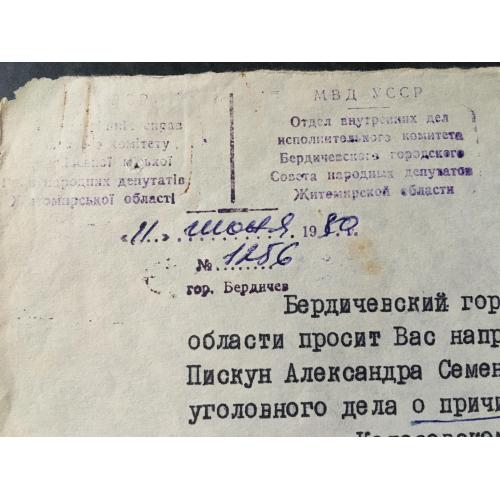 МВД УССР
справ
комітету
міської
народних депутатів
Житомирської області
МВД УССР
Отдел внутренних дел
исполнительного комитета
Бердичевского городского
Совета народных депутатов
Житомирской области
"11" июня 1980 г.
№ 1256
гор. Бердичев
Бердичевский гор
области просит Вас напр
Пискун Александра Семен
уголовного дела о причи